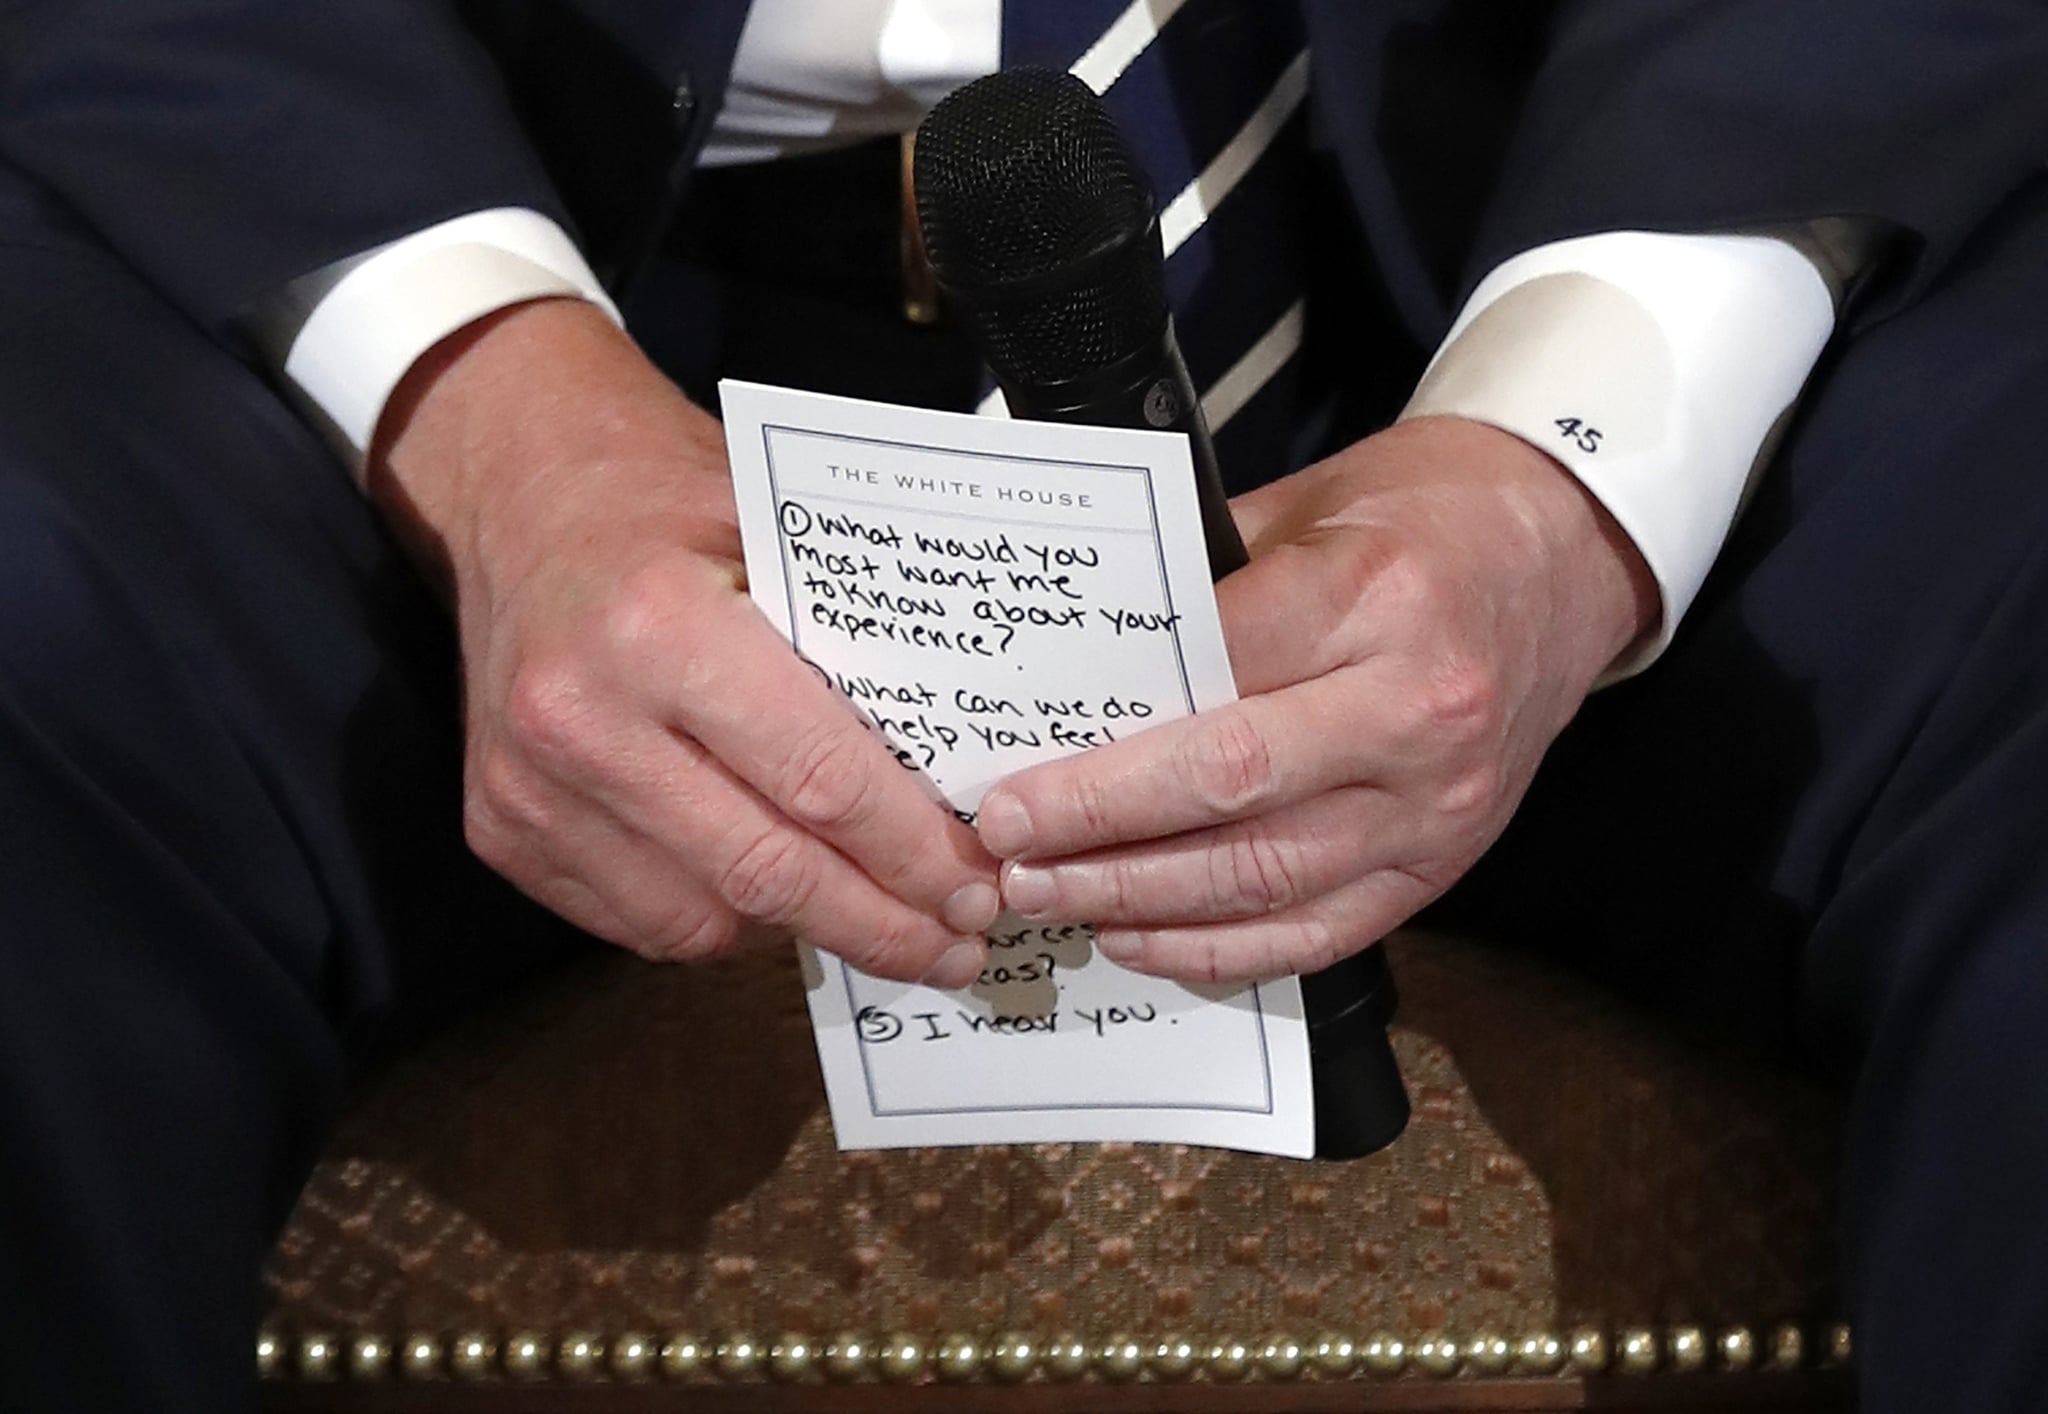 45
THE WHITE HOUSE
① What would you
most want me
to know about your
experience?
What can we do
help you feel
e?
urces
eas?
⑤ I hear you.